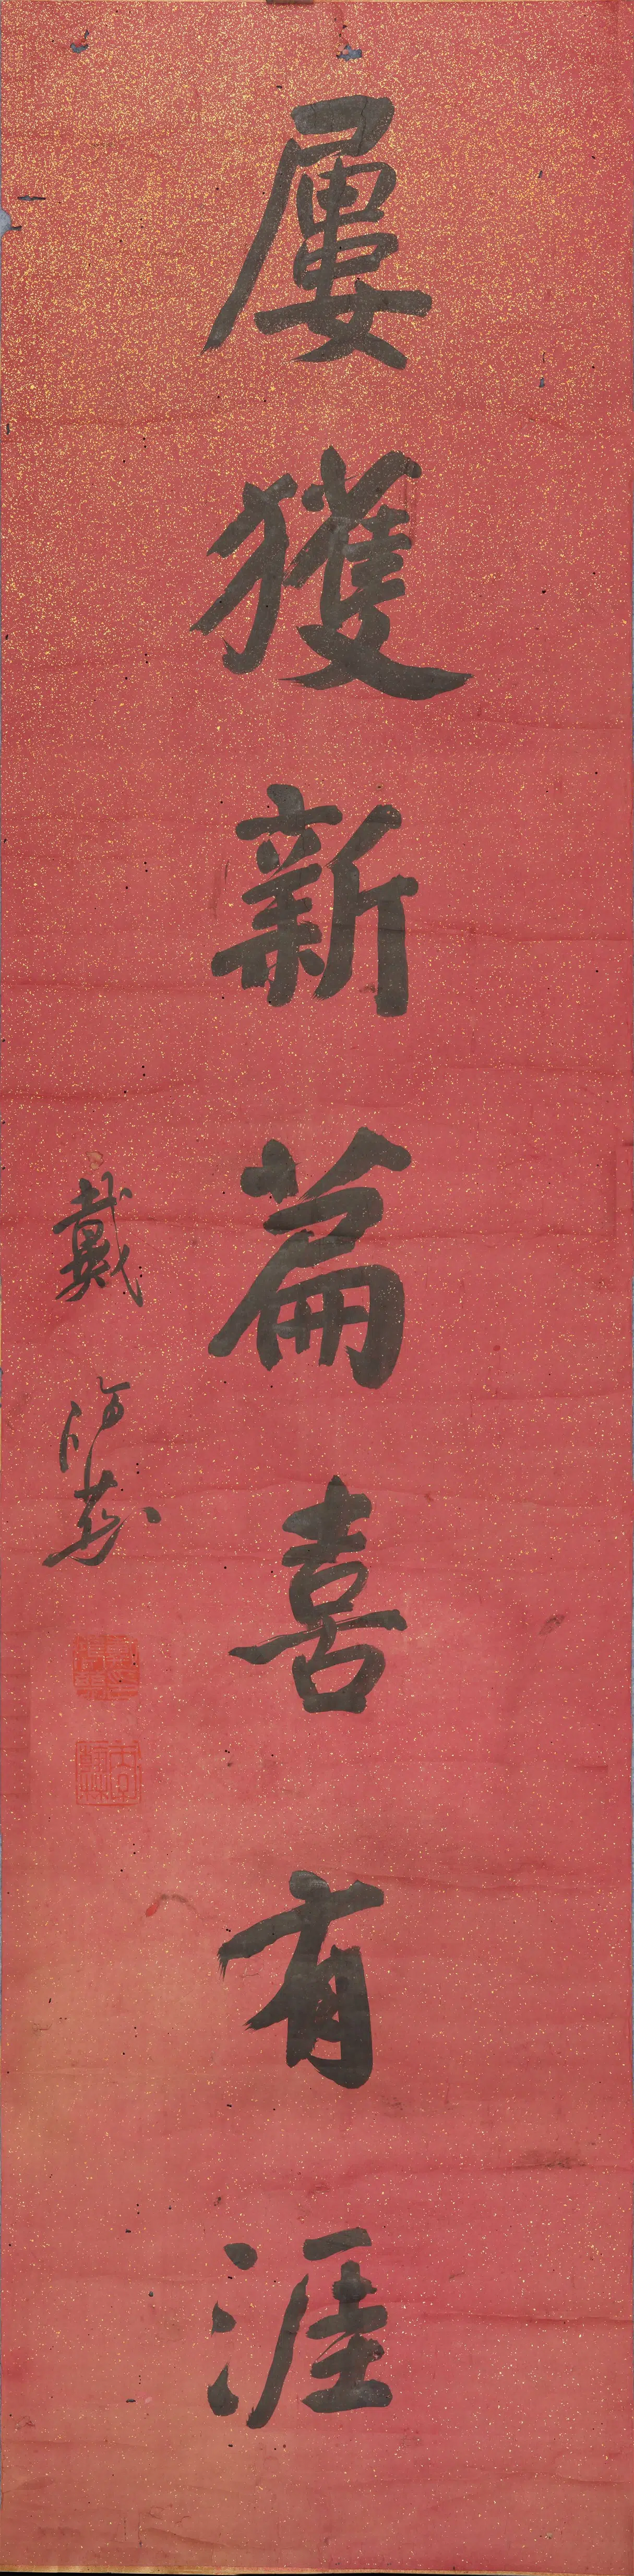 屢獲新篇喜有涯
戴